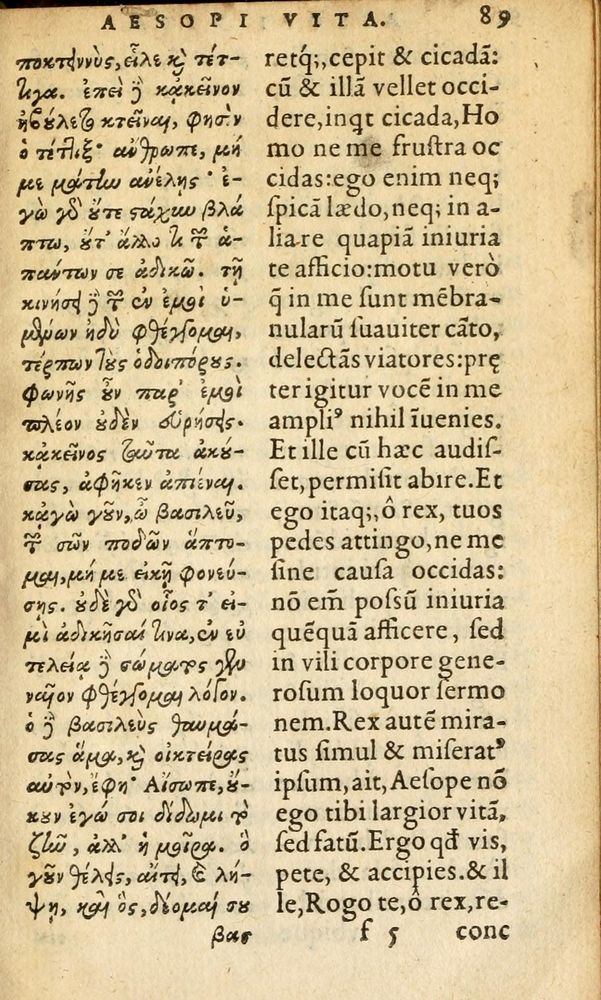 AESOPI VITA. 89
ποκτιννὺς, εἷλε κỳ τέτ-
τιγα. ἐπεὶ ὃ κἀκεῖνον
ἠβούλετο κτεῖναι, φησὶν
ὁ τέτλιξ· ἄνθρωπε, μή
με μάτην ἀνέλῃς· ἐ-
γὼ γὸ ὔτε στάχιω βλά
πτω, ὔτ' ἄλλο τι τῶν ἁ-
πάντων σε ἀδικῶ. τῇ
κινήσει ὃ τῶν ἐν ἐμοὶ ὑ-
μένων ἡδὺ φθέγγομαι,
τέρπων τοὺς ὁδοιπόρους.
φωνῆς οὖν παρ' ἐμοὶ
πλέον οὐδὲν εὑρήσεις.
κἀκεῖνος ταῦτα ἀκού-
σας, ἀφῆκεν ἀπιέναι.
κἀγὼ γοῦν, ὦ βασιλεῦ,
τῶν σῶν ποδῶν ἅπτο-
μαι, μή με εἰκῆ φονεύ-
σῃς. οὐδὲ γὸ οἷός τ' εἰ-
μὶ ἀδικῆσαί τινα, ἐν εὐ
τελείᾳ ὃ σώματος γεν
ναῖον φθέγγομαι λόγον.
ὁ ὃ βασιλεὺς θαυμά-
σας ἅμα, κỳ οἰκτείρας
αὐτὸν, ἔφη· Αἴσωπε, οὔ-
κουν ἐγώ σοι δίδωμι τὸ
ζῆν, ἀλλ' ἡ μοῖρα. ὃ
γοῦν θέλεις, αἴτει, ϗ λή-
ψῃ, καὶ ὃς, δέομαί σου
βασ
retq;, cepit & cicadã:
cũ & illã vellet occi-
dere, inqt cicada, Ho
mo ne me frustra oc
cidas: ego enim neq;
spicã lædo, neq; in a-
lia re quapiã iniuria
te afficio: motu verò
q̃ in me sunt mẽbra-
nularũ suauiter cãto,
delectãs viatores: prę
ter igitur vocẽ in me
ampliꝰ nihil ĩuenies.
Et ille cũ hæc audis-
set, permisit abire. Et
ego itaq;, ô rex, tuos
pedes attingo, ne me
sine causa occidas:
nõ em̃ possũ iniuria
quẽquã afficere, sed
in vili corpore gene-
rosum loquor sermo
nem. Rex autẽ mira-
tus simul & miseratꝰ
ipsum, ait, Aesope nõ
ego tibi largior vitã,
sed fatũ. Ergo qđ vis,
pete, & accipies. & il
le, Rogo te, ô rex, re-
f 5 conc